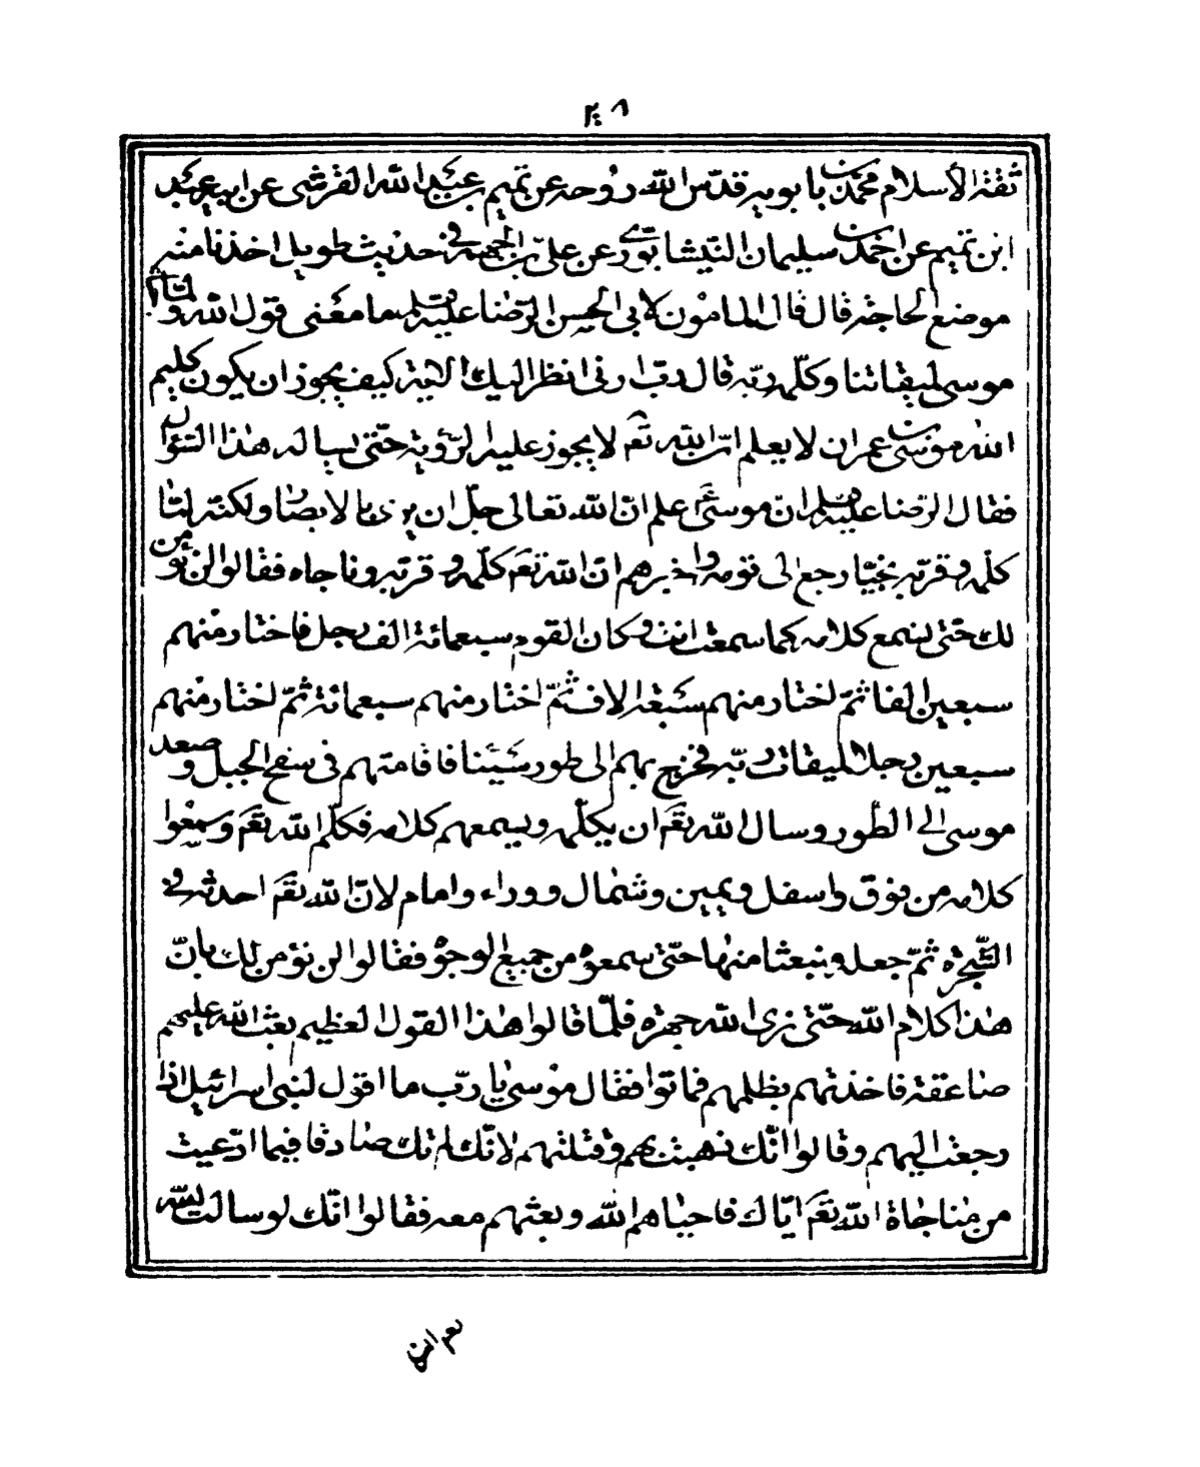 ٢٠٨
ثقة الأسلام محمد بن بابويه قدّس الله روحه عن تميم بن عبد الله القرشى عن ابيه عبد
ابن تميم عن احمد بن سليمان النّيشابورى عن علىّ بن الجهم فى حديث طويل اخذنا منه
موضع الحاجة قال قال المامون لابى الحسن الرّضا عليه السلم ما معنى قول الله ولمّا جاء
موسى لميقاتنا وكلّمه ربّه قال ربّ ارنى انظر اليك الاية كيف يجوز ان يكون كليم
الله موسى بن عمران لا يعلم انّ الله تعَ لا يجوز عليه الرّؤية حتّى يساله هذا السّؤال
فقال الرّضا عليه السلم انّ موسىَ علم انّ الله تعالى جلّ ان يرى بالابصار ولكنّه لمّا
كلّمه وقرّبه نجيّا رجع الى قومه واخبرهم انّ الله تعَ كلّمه وقرّبه وناجاه فقالوا لن نؤمن
لك حتّى نسمع كلامه كما سمعت انت وكان القوم سبعمائة الف رجل فاختار منهم
سبعين الفا ثمّ اختار منهم سَبْعة الاف ثُمّ اختار منهم سبعمائة ثمّ اختار منهم
سبعين رجلا لميقات ربّه فخرج بهم الى طور سَيْنا فاقامتهم فى سفح الجبل وصعد
موسى الى الطّور وسال الله تعَ ان يكلّمه ويسمعهم كلامه فكلّم الله تعَ وسمعوا
كلامه من فوق واسفل ويمين وشمال ووراء وامام لانّ الله تعَ احدثه فى
الشّجرة ثمّ جعله منبعثا منها حتّى سمعوه من جميع الوجوه فقالوا لن نؤمن لك بانّ
هذا كلام الله حتّى نرى الله جهرة فلمّا قالوا هذا القول العظيم بعث الله عليهم
صاعقة فاخذتهم بظلمهم فماتوا فقال موسى يا ربّ ما اقول لبنى اسرائيل اذا
رجعت اليهم وقالوا انّك ذهبت بهم وقتلتهم لانّك لم تك صادقا فيما ادّعيت
من مناجاة الله تعَ ايّاك فاحياهم الله وبعثهم معه فقالوا انّك لو سالت الله